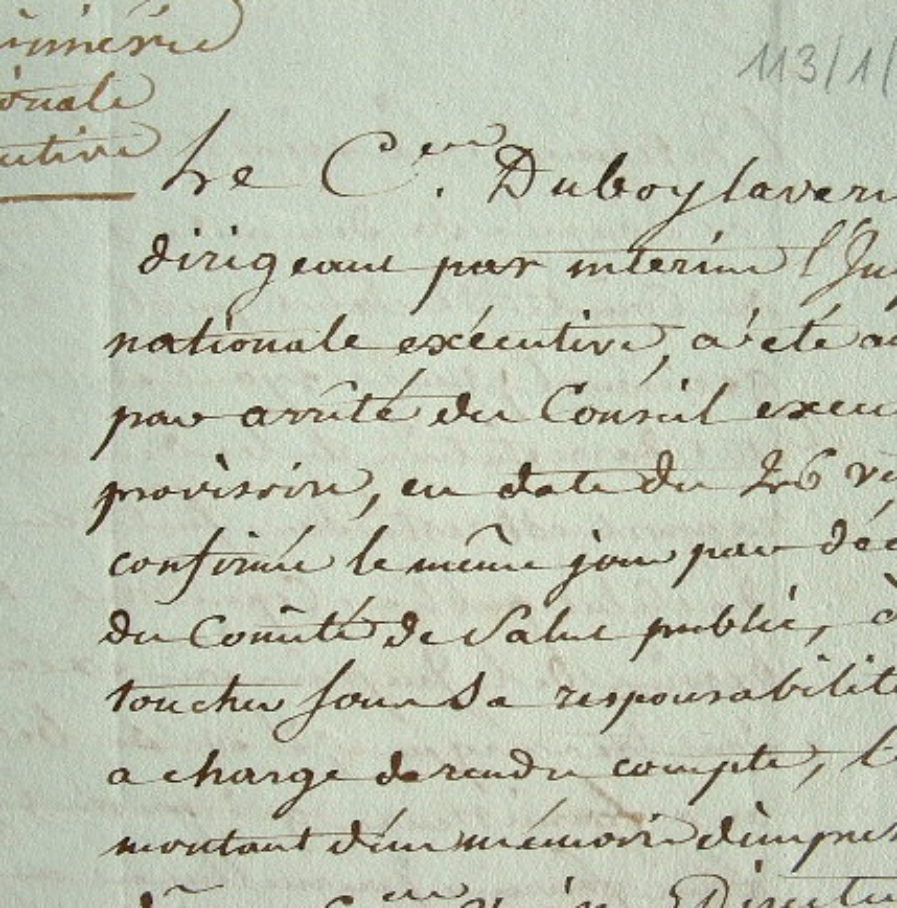 imérie
onale
cutive
113/1/
Le C.en Duboylavern
dirigeant par interim l'Im
nationale exécutive, a été au
par arrêté du Conseil execu
provisoire, en date du 26 ve
confirmé le même jour par déc
du Comité de Salut public, à
toucher sous sa responsabilité
a charge de rendre compte, le
montant d'un mémoire d'impres
C.en Directe